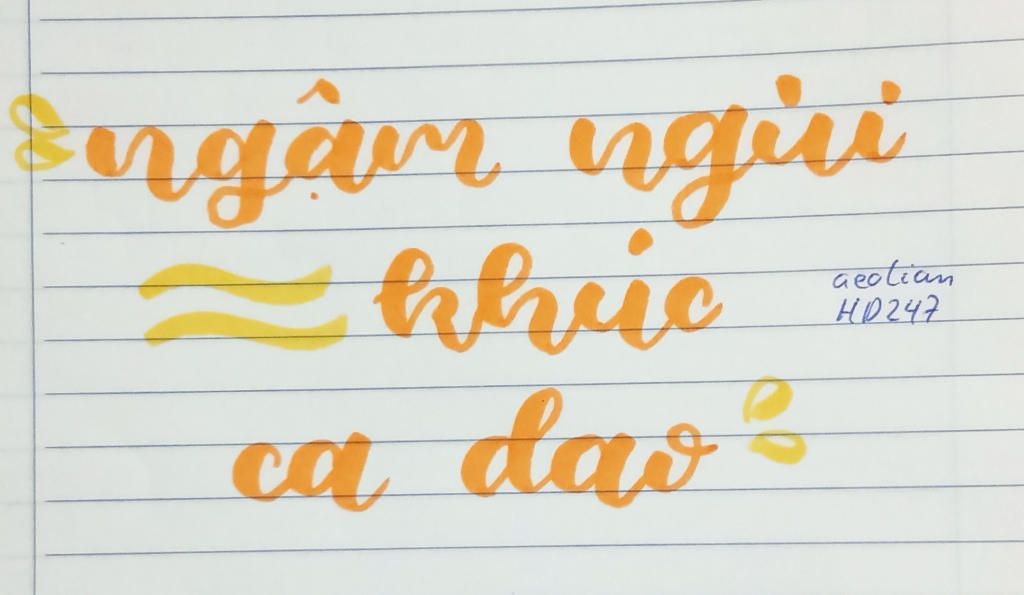 ngậm ngùi
khúc
aeolian
HD247
ca dao